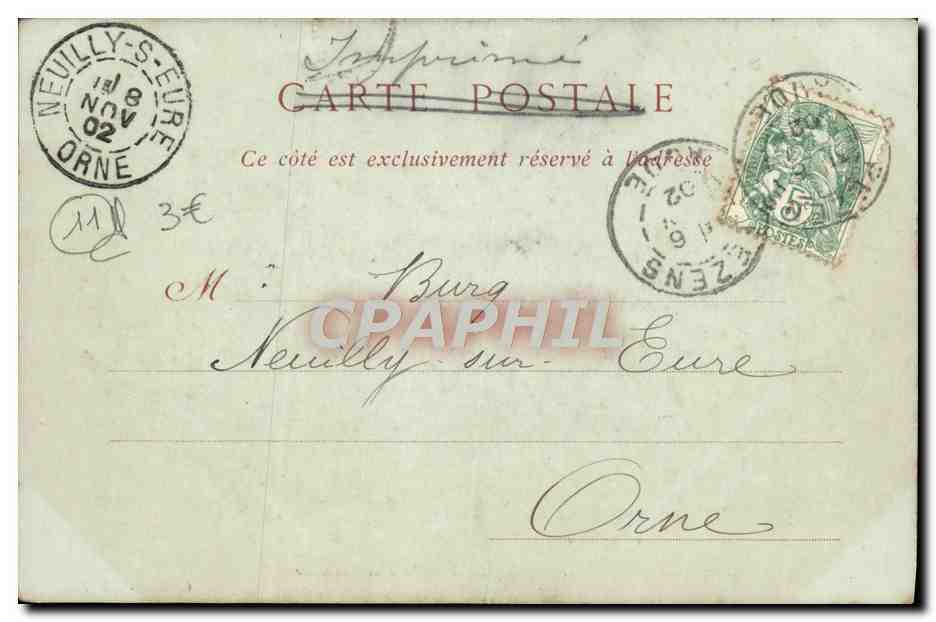 Imprimé
CARTE POSTALE
Ce côté est exclusivement réservé à l'adresse
NEUILLY-S-EURE
8
NOV
02
ORNE
11
3€
6
02
AUDE
5
POSTES
M Burg
CPAPHIL
Neuilly-sur-Eure
Orne